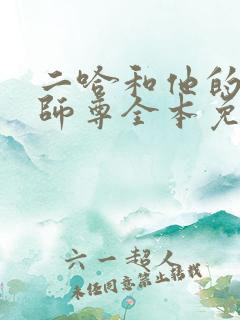 二哈和他的
師尊全本免
六一超人
未经同意禁止转载